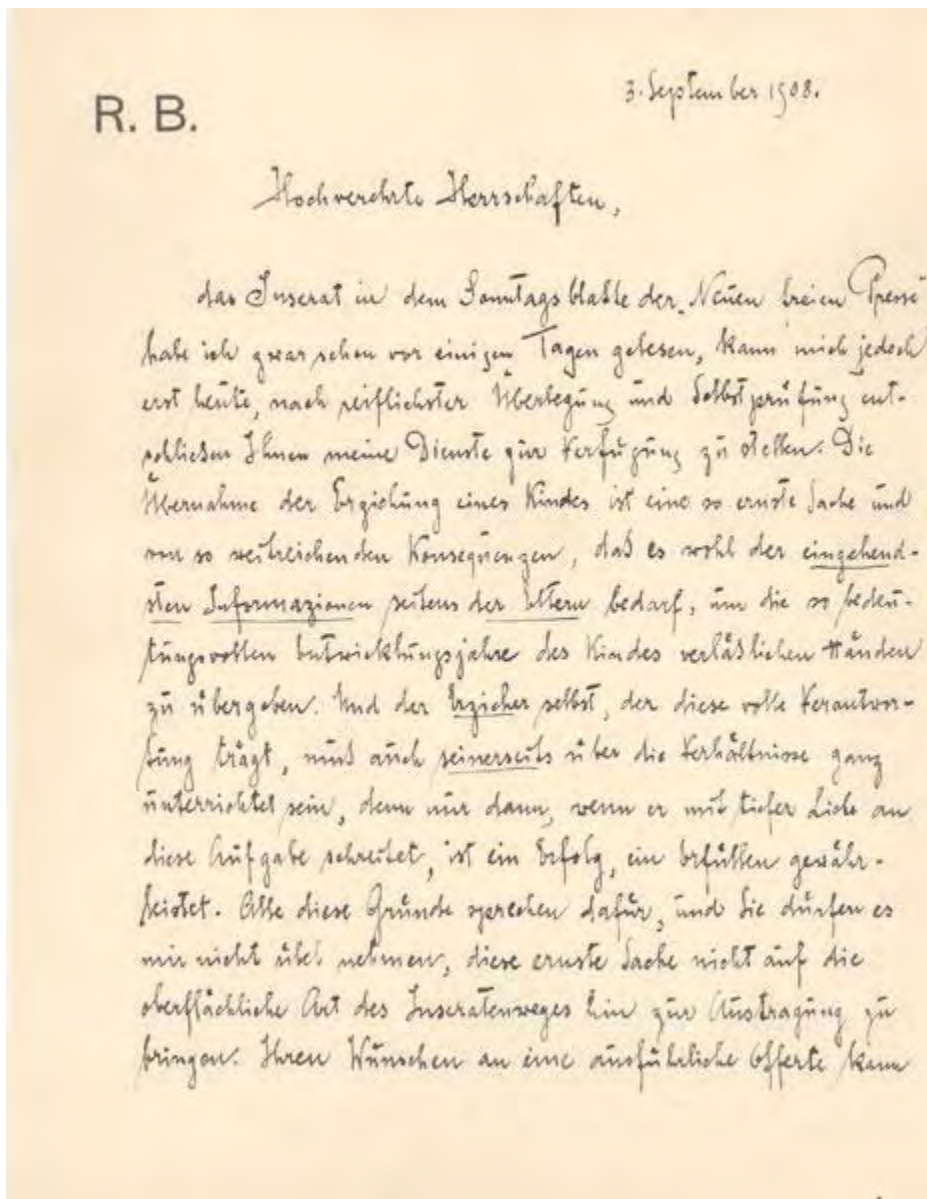 3. September 1908.
R. B.
Hochverehrte Herrschaften,
das Inserat in dem Sonntagsblatte der „Neuen freien Presse“
habe ich zwar schon vor einigen Tagen gelesen, kann mich jedoch
erst heute, nach reiflichster Überlegung und Selbstprüfung ent-
schließen Ihnen meine Dienste zur Verfügung zu stellen. Die
Übernahme der Erziehung eines Kindes ist eine so ernste Sache und
von so weitreichenden Konsequenzen, daß es wohl der eingehend-
sten Informazionen seitens der Eltern bedarf, um die so bedeu-
tungsvollen Entwicklungsjahre des Kindes verläßlichen Händen
zu übergeben. Und der Erzieher selbst, der diese volle Verantwor-
tung trägt, muß auch seinerseits über die Verhältnisse ganz
unterrichtet sein, denn nur dann, wenn er mit tiefer Liebe an
diese Aufgabe schreitet, ist ein Erfolg, ein Erfüllen gewähr-
leistet. Alle diese Gründe sprechen dafür, und Sie dürfen es
mir nicht übel nehmen, diese ernste Sache nicht auf die
oberflächliche Art des Inseratenweges hin zur Austragung zu
bringen. Ihren Wünschen an eine ausführliche Offerte kann